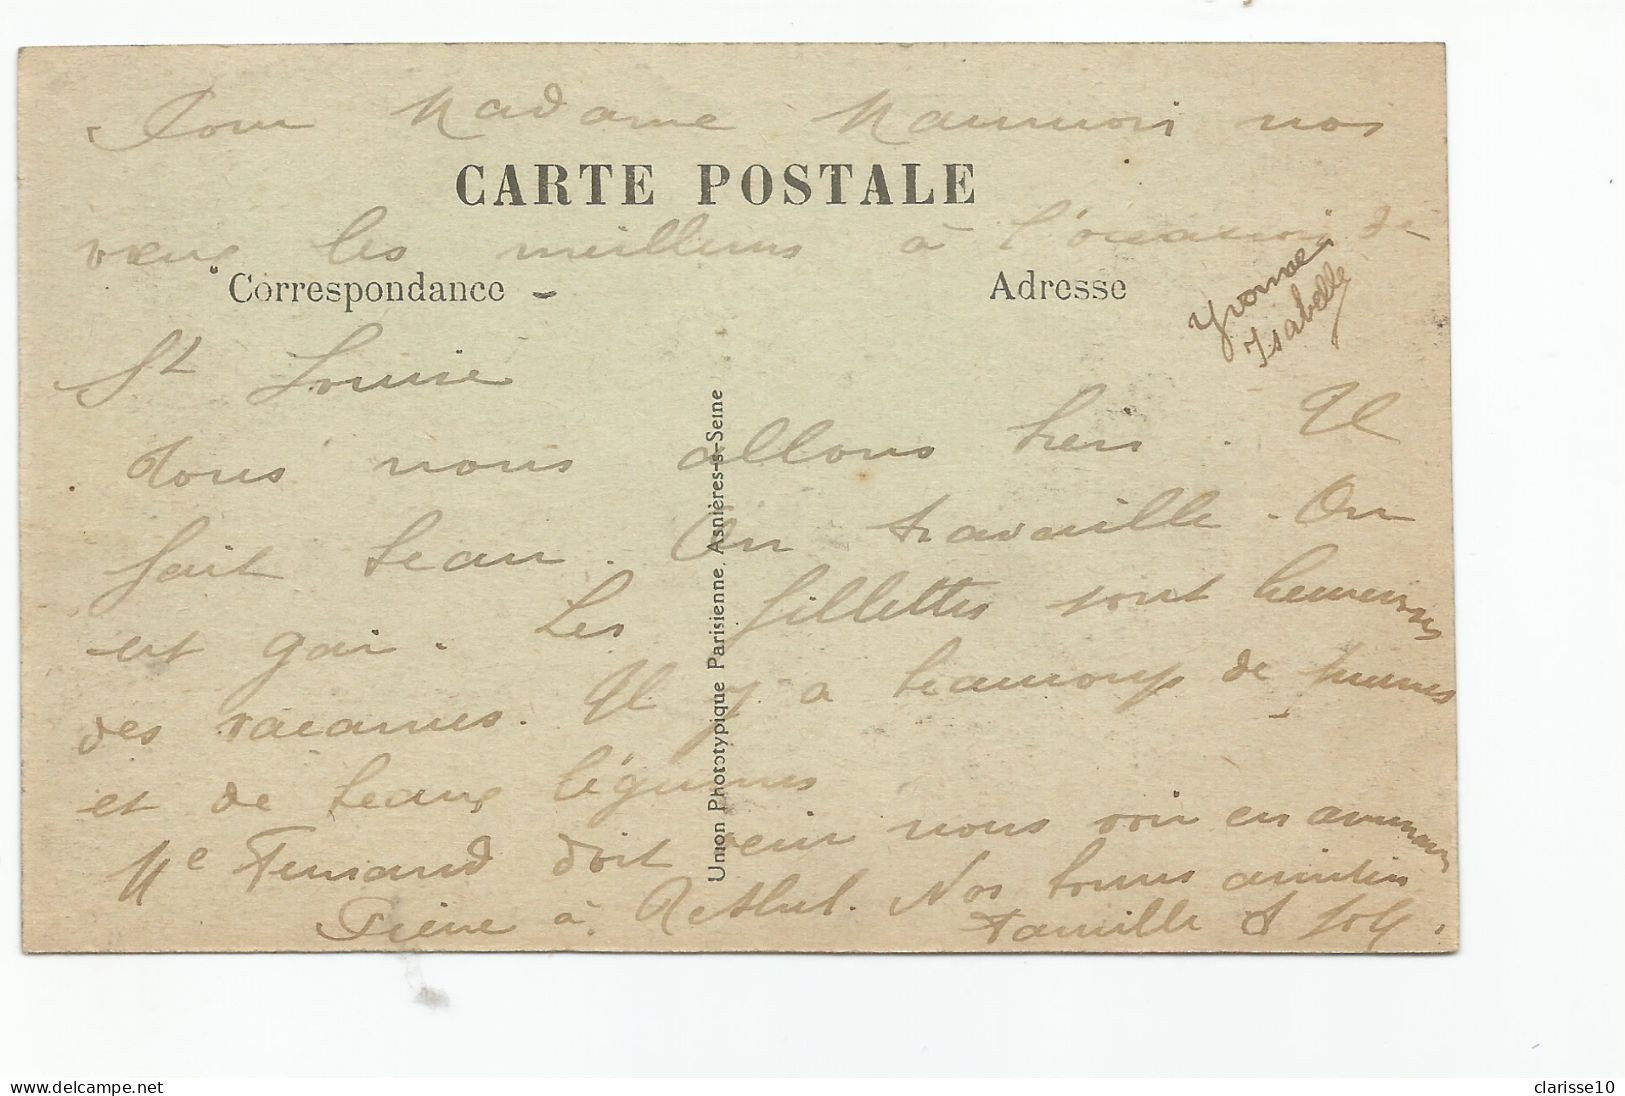 Pour Madame Maumois nos
CARTE POSTALE
vœux les meilleurs à l'occasion de
Correspondance
Adresse
Yvonne
Isabelle
St Louise
Tous nous allons bien. Il
fait beau. On travaille. On
est gai. Les fillettes sont heureuses
des vacances. Il y a beaucoup de prunes
et de beaux légumes
Me Fernand doit venir nous voir en
Pierre à Rethel. Nos bonnes amitiés
Famille
Union Phototypique Parisienne, Asnières-s-Seine
delcampe.net
clarisse10